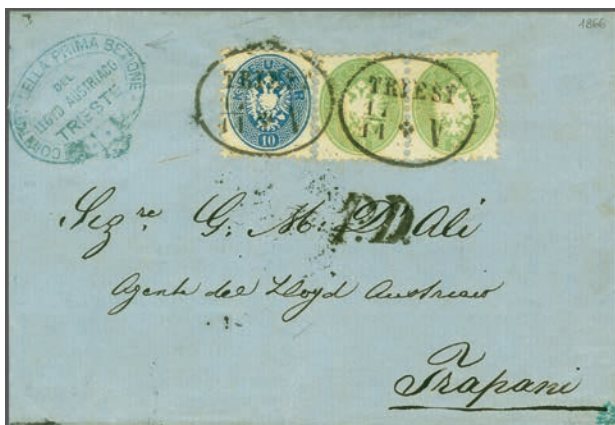 1866
COMPARTO DELLA PRIMA SEZIONE
DEL
LLOYD AUSTRIACO
TRIESTE
KREUZER
10
TRIEST
11
V
TRIEST
11
V
P.D.
Sigre G. M. D'Ali
Agente del Lloyd Austriaco
Trapani